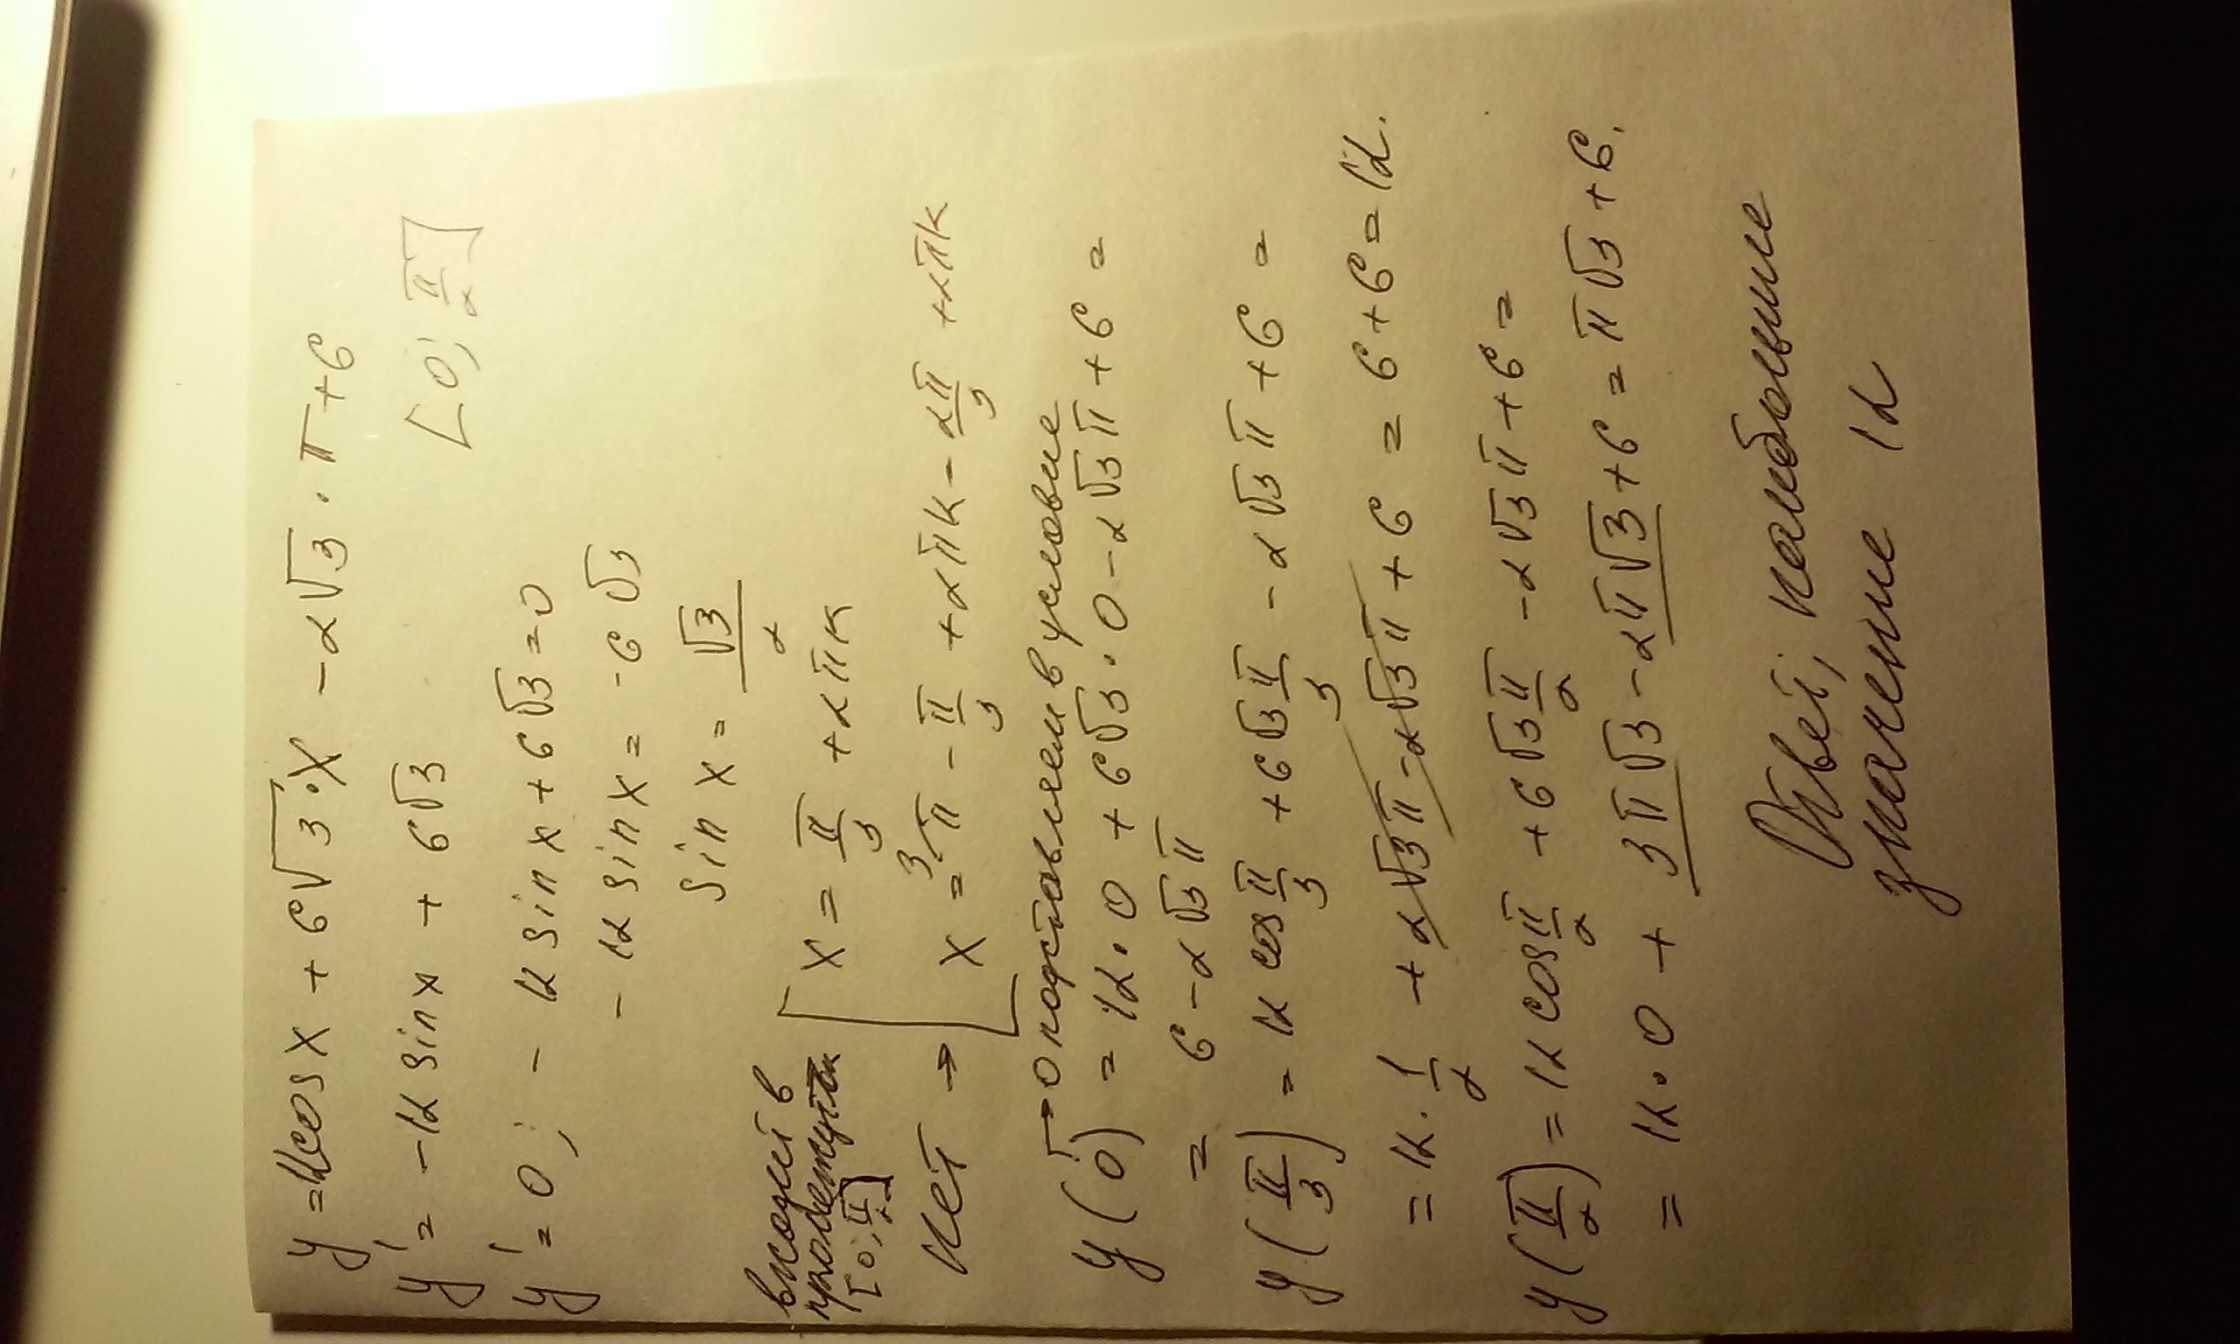 y = 12cosx + 6√3·x - 2√3·π + 6
y' = -12 sinx + 6√3 [0; π/2]
y' = 0; -12 sinx + 6√3 = 0
-12 sinx = -6√3
sin x = √3/2
входит в промежуток [0; π/2] x = π/3 + 2πк
нет → x = π - π/3 + 2πк - 2π/3 + 2πк
→ 0 подставляем в условие
y(0) = 12·0 + 6√3·0 - 2√3π + 6 =
= 6 - 2√3π
y(π/3) = 12 cos π/3 + 6√3 π/3 - 2√3π + 6 =
= 12·1/2 + 2√3π - 2√3π + 6 = 6 + 6 = 12.
y(π/2) = 12 cos π/2 + 6√3 π/2 - 2√3π + 6 =
= 12·0 + 3π√3 - 2π√3 + 6 = π√3 + 6.
Ответ; наибольшие
значение 12